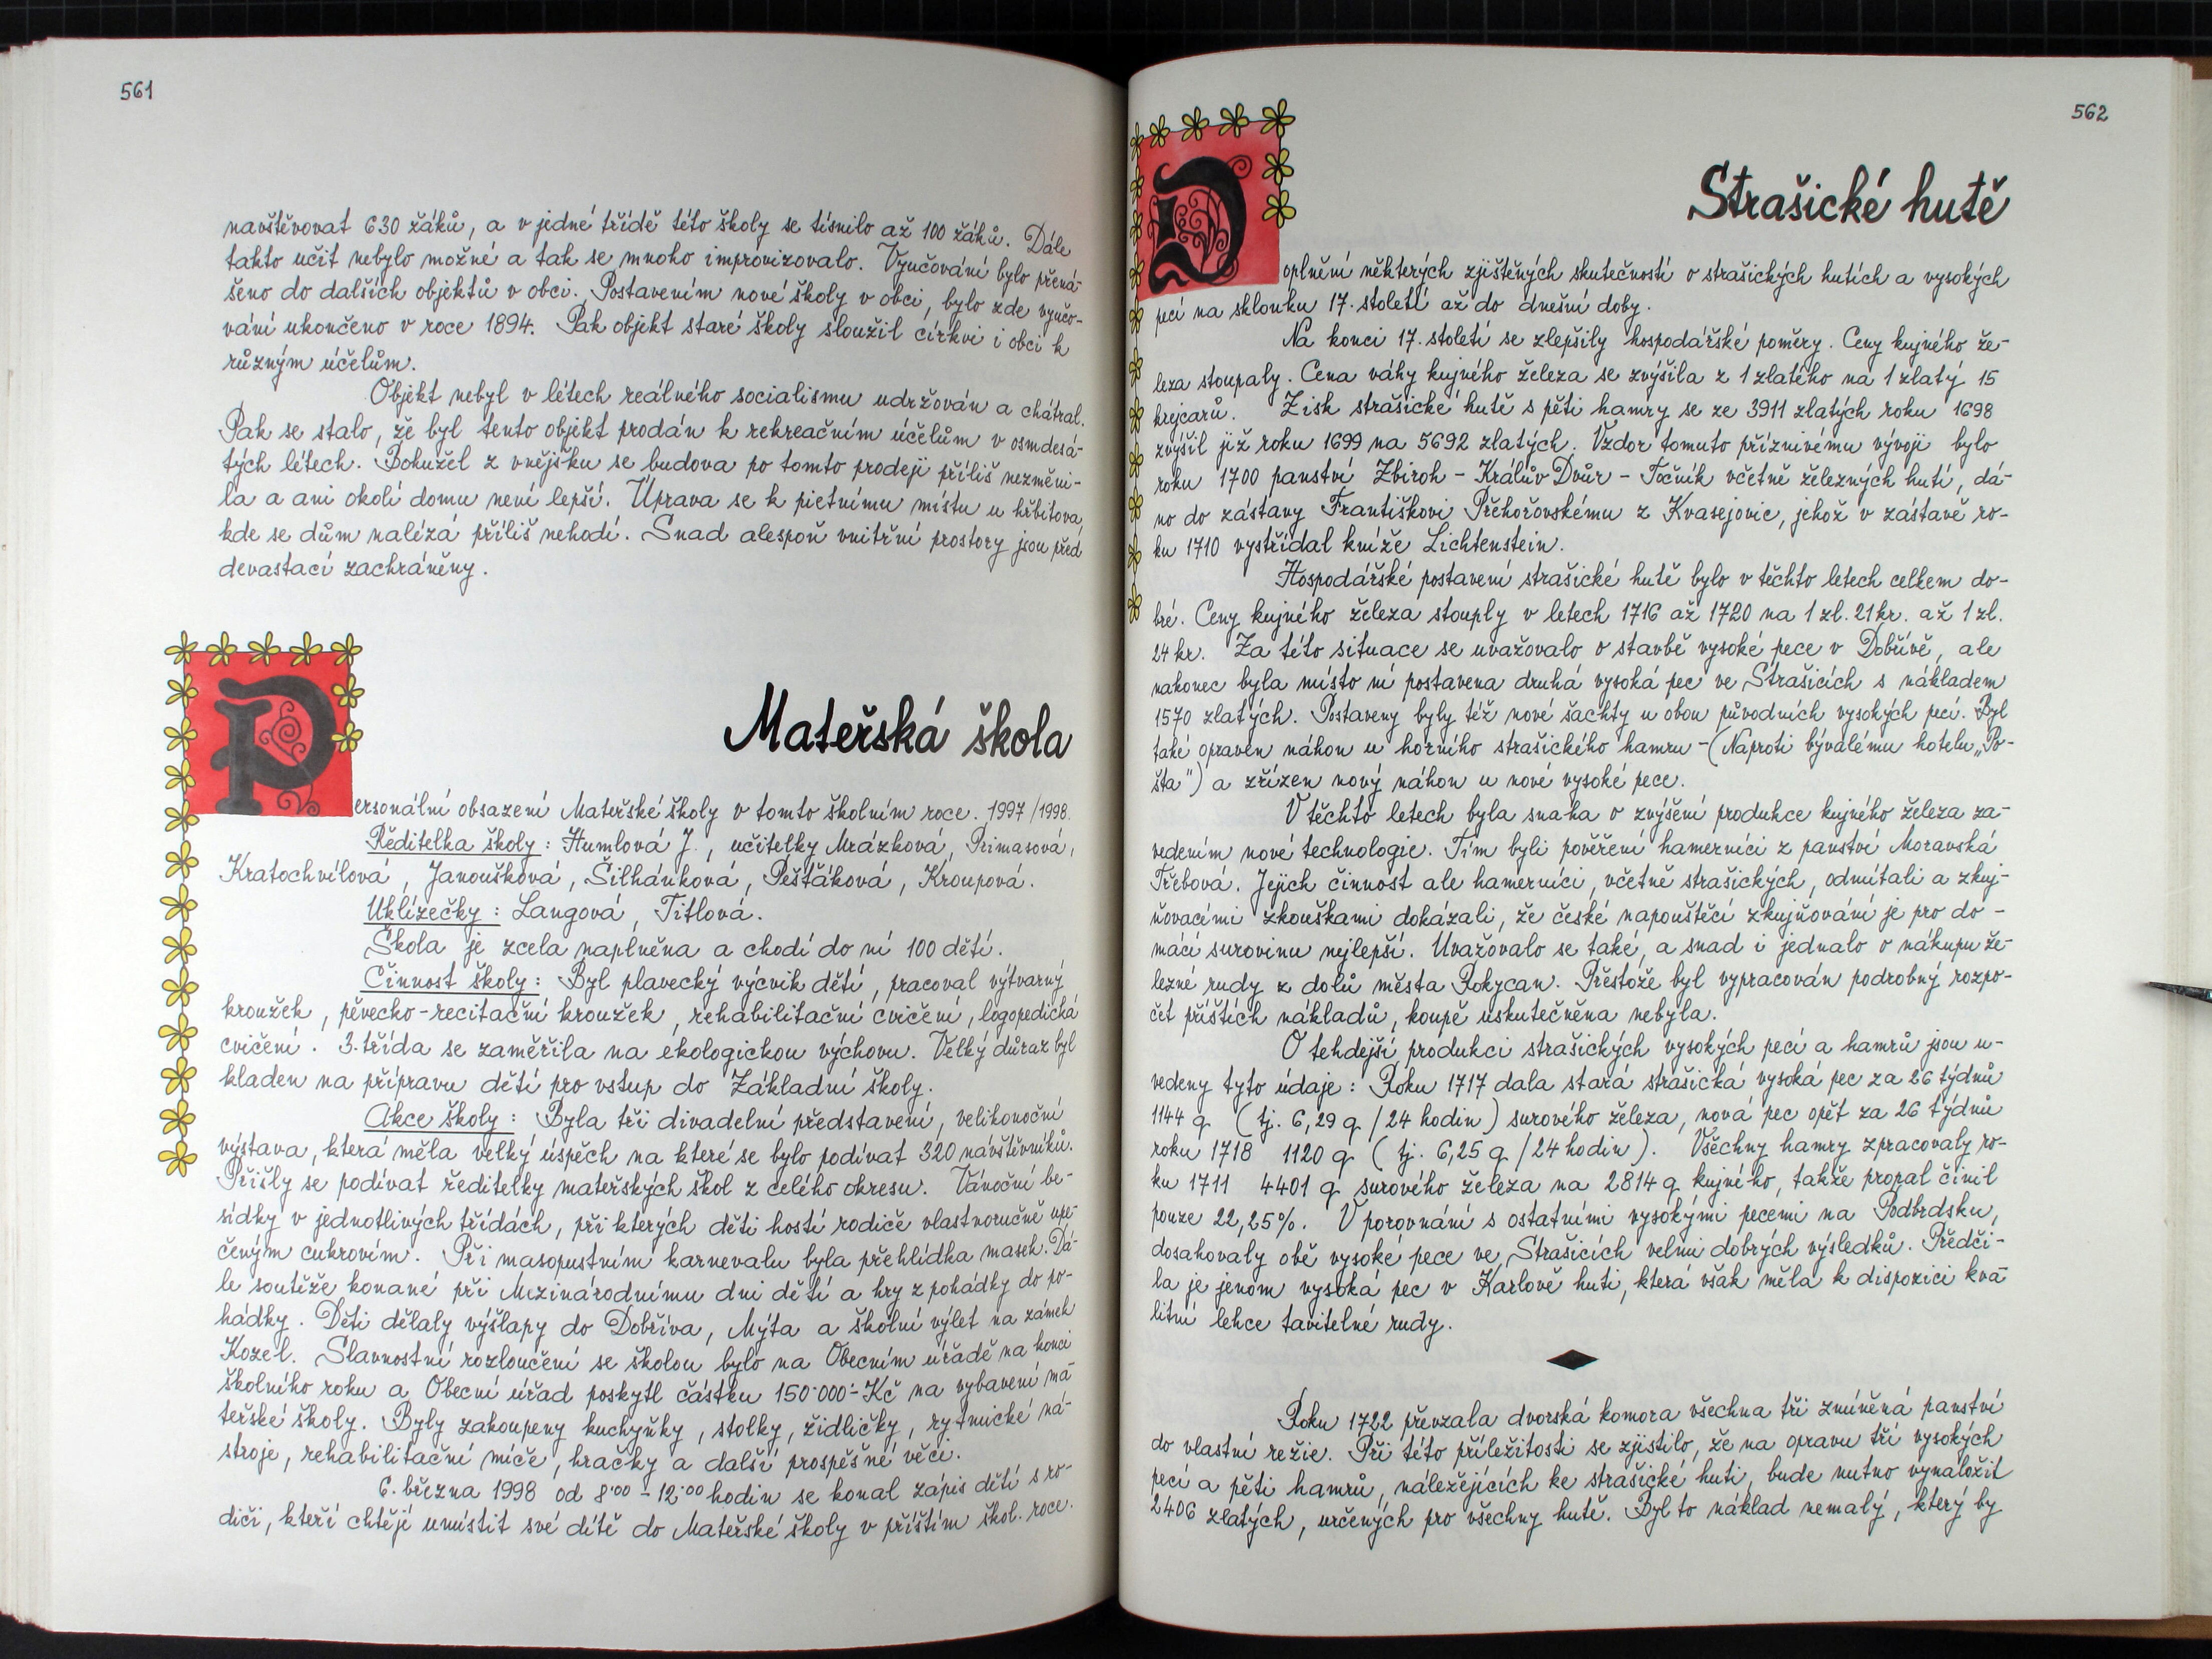 561
navštěvovat 630 žáků, a v jedné třídě této školy se tísnilo až 100 žáků. Dále
takto učit nebylo možné a tak se mnoho improvizovalo. Vyučování bylo přená-
šeno do dalších objektů v obci. Postavením nové školy v obci, bylo zde vyučo-
vání ukončeno v roce 1894. Pak objekt staré školy sloužil církvi i obci k
různým účelům.
Objekt nebyl v létech reálného socialismu udržován a chátral.
Pak se stalo, že byl tento objekt prodán k rekreačním účelům v osmdesá-
tých létech. Bohužel z vnějšku se budova po tomto prodeji příliš nezměni-
la a ani okolí domu není lepší. Úprava se k pietnímu místu u hřbitova,
kde se dům nalézá příliš nehodí. Snad alespoň vnitřní prostory jsou před
devastací zachráněny.
Mateřská škola
Personální obsazení Mateřské školy v tomto školním roce. 1997/1998.
Ředitelka školy: Humlová J., učitelky Mrázková, Primasová,
Kratochvílová, Janoušková, Šilhánková, Pešťáková, Kroupová.
Uklízečky: Langová, Titlová.
Škola je zcela naplněna a chodí do ní 100 dětí.
Činnost školy: Byl plavecký výcvik dětí, pracoval výtvarný
kroužek, pěvecko-recitační kroužek, rehabilitační cvičení, logopedická
cvičení. 3. třída se zaměřila na ekologickou výchovu. Velký důraz byl
kladen na přípravu dětí pro vstup do Základní školy.
Akce školy: Byla tři divadelní představení, velikonoční
výstava, která měla velký úspěch na které se bylo podívat 320 návštěvníků.
Přišly se podívat ředitelky mateřských škol z celého okresu. Vánoční be-
sídky v jednotlivých třídách, při kterých děti hostí rodiče vlastnoručně upe-
čeným cukrovím. Při masopustním karnevalu byla přehlídka masek. Dá-
le soutěže konané při Mezinárodnímu dni dětí a hry z pohádky do po-
hádky. Děti dělaly výšlapy do Dobříva, Mýta a školní výlet na zámek
Kozel. Slavnostní rozloučení se školou bylo na Obecním úřadě na konci
školního roku a Obecní úřad poskytl částku 150·000·- Kč na vybavení ma-
teřské školy. Byly zakoupeny kuchyňky, stolky, židličky, rytmické ná-
stroje, rehabilitační míče, hračky a další prospěšné věci.
6. března 1998 od 8·00 - 12·00 hodin se konal zápis dětí s ro-
diči, kteří chtějí umístit své dítě do Mateřské školy v příštím škol. roce.
562
Strašické hutě
Doplnění některých zjištěných skutečností o strašických hutích a vysokých
pecí na sklonku 17. století až do dnešní doby.
Na konci 17. století se zlepšily hospodářské poměry. Ceny kujného že-
leza stoupaly. Cena váhy kujného železa se zvýšila z 1 zlatého na 1 zlatý 15
krejcarů. Zisk strašické hutě s pěti hamry se ze 3911 zlatých roku 1698
zvýšil již roku 1699 na 5692 zlatých. Vzdor tomuto příznivému vývoji bylo
roku 1700 panství Zbiroh - Králův Dvůr - Točník včetně železných hutí, dá-
no do zástavy Františkovi Přehořovskému z Kvasejovic, jehož v zástavě ro-
ku 1710 vystřídal kníže Lichtenstein.
Hospodářské postavení strašické hutě bylo v těchto letech celkem do-
bré. Ceny kujného železa stouply v letech 1716 až 1720 na 1 zl. 21 kr. až 1 zl.
24 kr. Za této situace se uvažovalo o stavbě vysoké pece v Dobřívě, ale
nakonec byla místo ní postavena druhá vysoká pec ve Strašicích s nákladem
1570 zlatých. Postaveny byly též nové šachty u obou původních vysokých pecí. Byl
také opraven náhon u horního strašického hamru - (Naproti bývalému hotelu „Po-
šta") a zřízen nový náhon u nové vysoké pece.
V těchto letech byla snaha o zvýšení produkce kujného železa za-
vedením nové technologie. Tím byli pověřeni hamerníci z panství Moravská
Třebová. Jejich činnost ale hamerníci, včetně strašických, odmítali a zkuj-
ňovacími zkouškami dokázali, že české napouštěcí zkujňování je pro do-
mácí surovinu nejlepší. Uvažovalo se také, a snad i jednalo o nákupu že-
lezné rudy z dolů města Rokycan. Přestože byl vypracován podrobný rozpo-
čet příštích nákladů, koupě uskutečněna nebyla.
O tehdejší produkci strašických vysokých pecí a hamrů jsou u-
vedeny tyto údaje: Roku 1717 dala stará strašická vysoká pec za 26 týdnů
1144 q (tj. 6,29 q /24 hodin) surového železa, nová pec opět za 26 týdnů
roku 1718 1120 q (tj. 6,25 q /24 hodin). Všechny hamry zpracovaly ro-
ku 1711 4401 q surového železa na 2814 q kujného, takže propal činil
pouze 22,25%. V porovnání s ostatními vysokými pecemi na Podbrdsku,
dosahovaly obě vysoké pece ve Strašicích velmi dobrých výsledků. Předči-
la je jenom vysoká pec v Karlově huti, která však měla k dispozici kva-
litní lehce tavitelné rudy.
Roku 1722 převzala dvorská komora všechna tři zmíněná panství
do vlastní režie. Při této příležitosti se zjistilo, že na opravu tří vysokých
pecí a pěti hamrů, náležejících ke strašické huti, bude nutno vynaložit
2406 zlatých, určených pro všechny hutě. Byl to náklad nemalý, který by